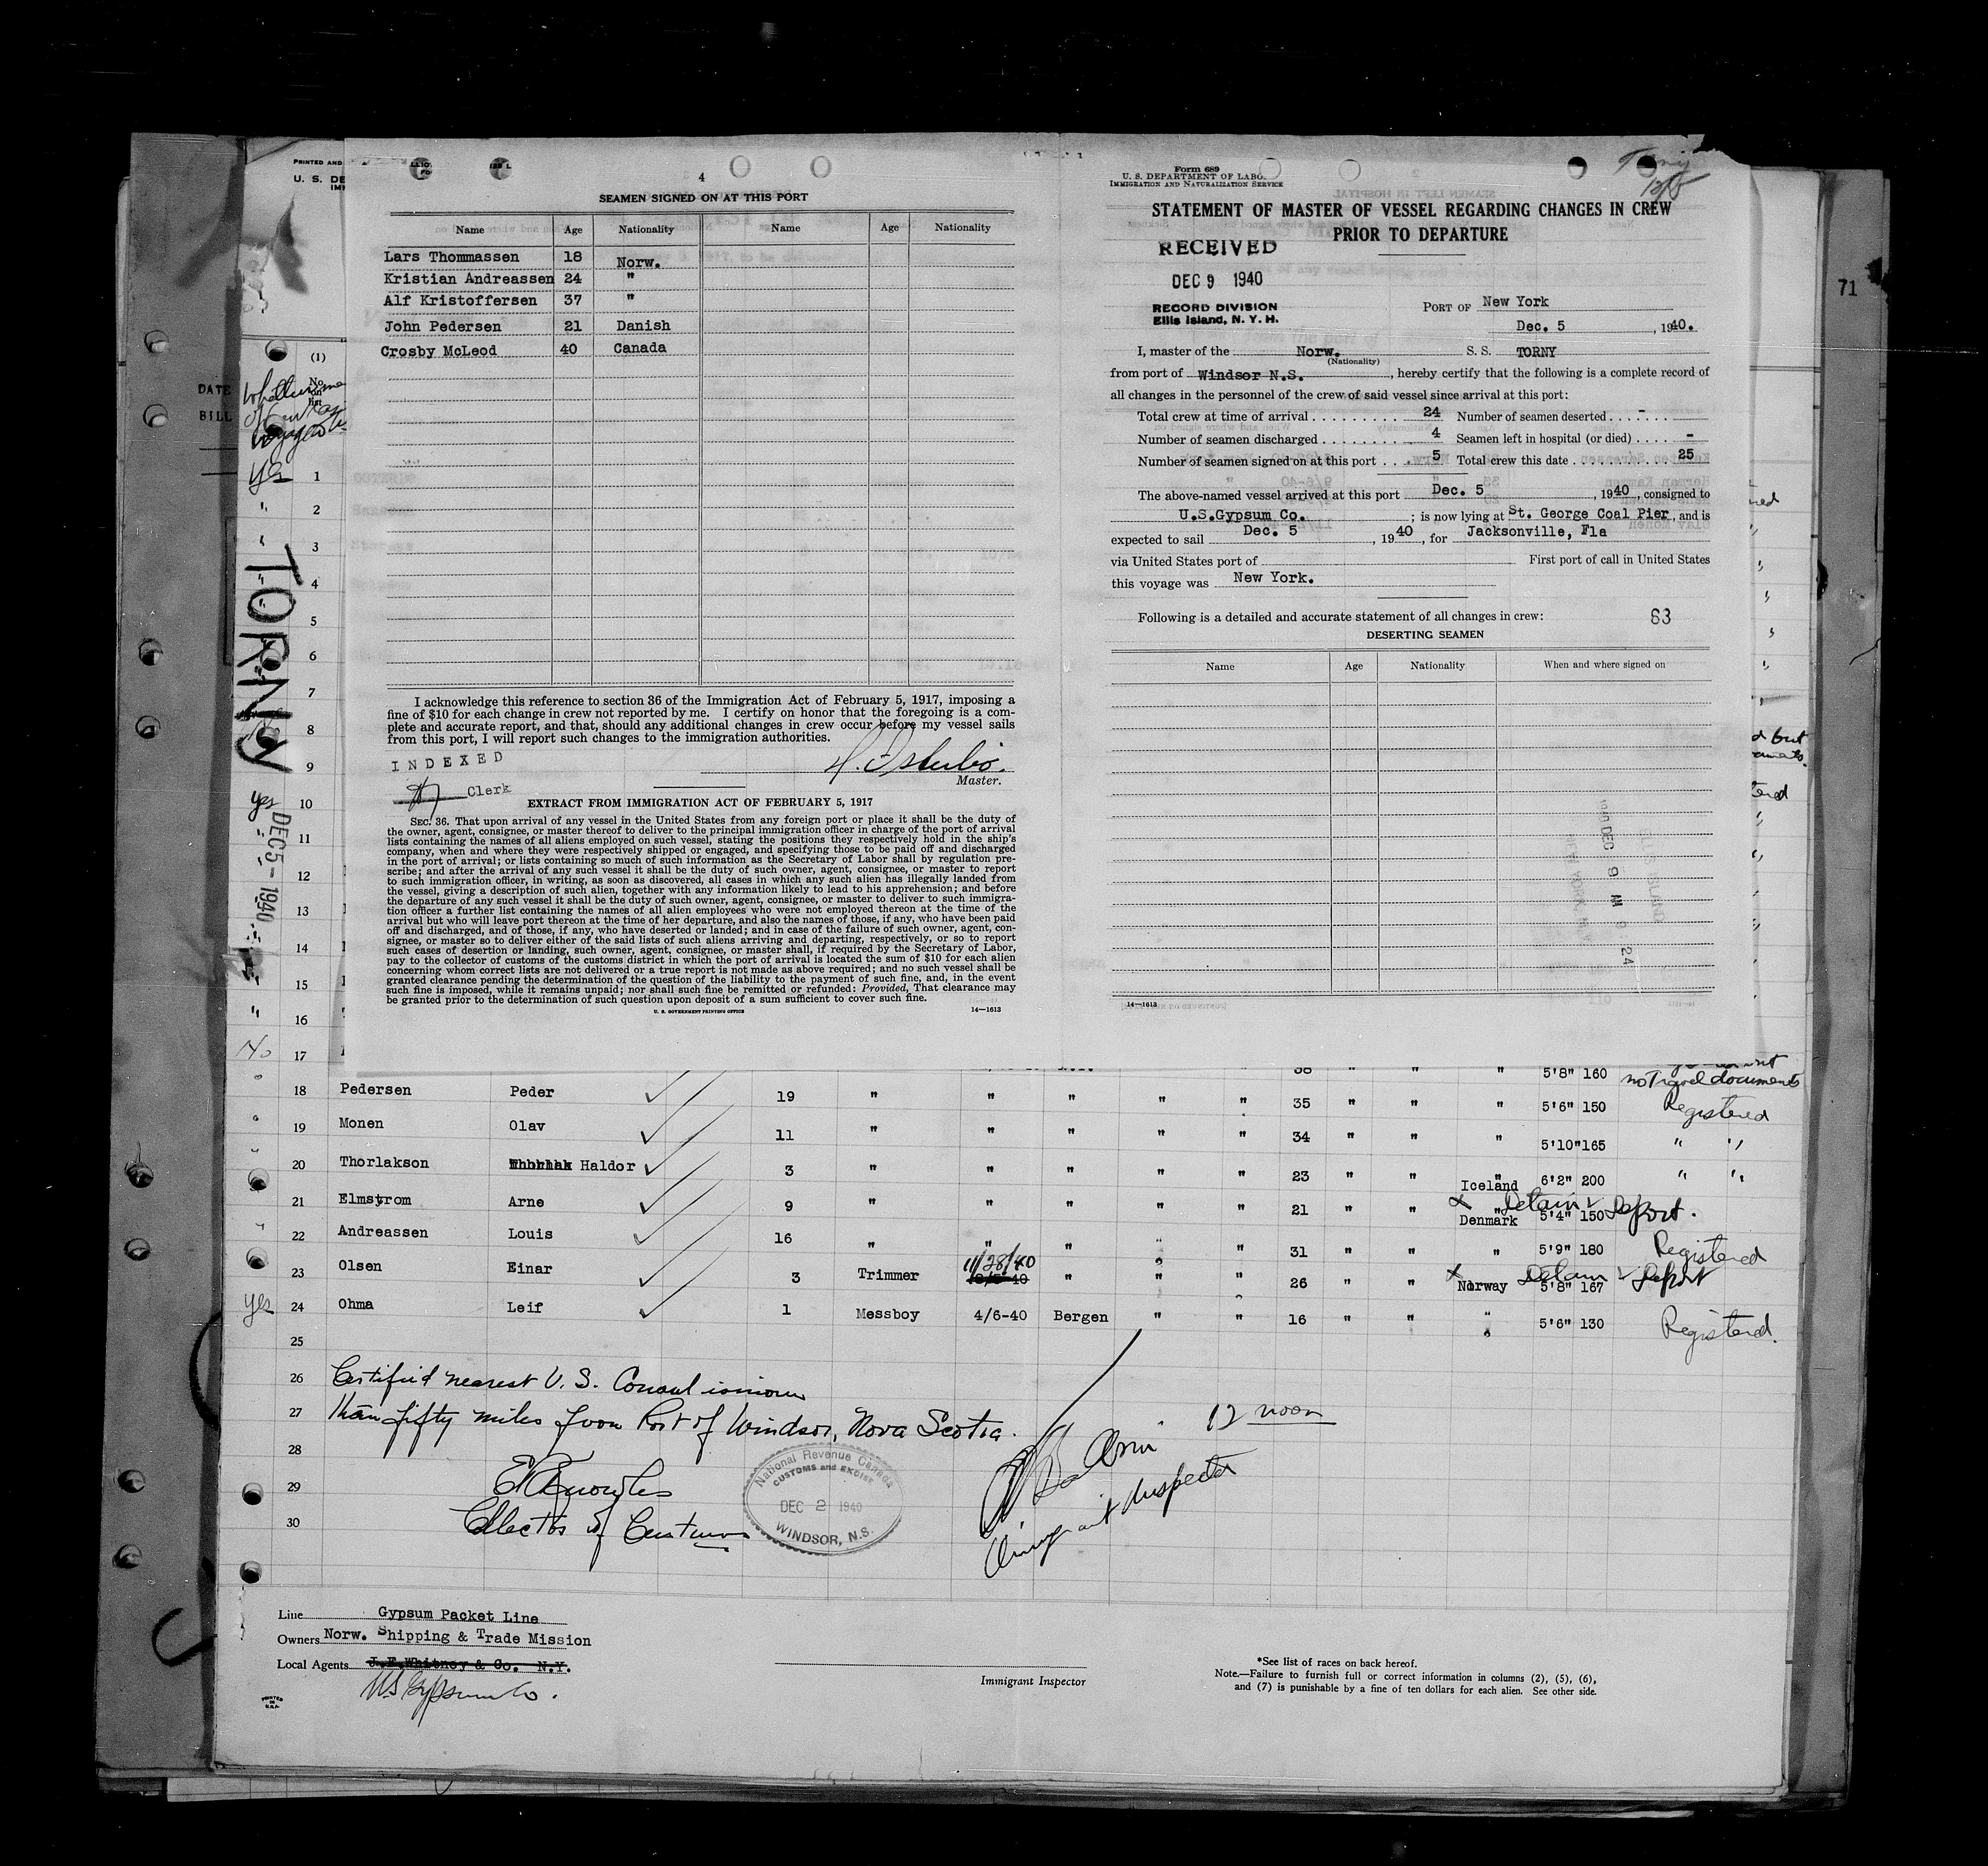 4
SEAMEN SIGNED ON AT THIS PORT
Name Age Nationality Name Age Nationality
Lars Thommassen 18 Norw.
Kristian Andreassen 24 "
Alf Kristoffersen 37 "
John Pedersen 21 Danish
Crosby McLeod 40 Canada
I acknowledge this reference to section 36 of the Immigration Act of February 5, 1917, imposing a
fine of $10 for each change in crew not reported by me. I certify on honor that the foregoing is a com-
plete and accurate report, and that, should any additional changes in crew occur before my vessel sails
from this port, I will report such changes to the immigration authorities.
INDEXED
Clerk
Master.
EXTRACT FROM IMMIGRATION ACT OF FEBRUARY 5, 1917
SEC. 36. That upon arrival of any vessel in the United States from any foreign port or place it shall be the duty of
the owner, agent, consignee, or master thereof to deliver to the principal immigration officer in charge of the port of arrival
lists containing the names of all aliens employed on such vessel, stating the positions they respectively hold in the ship's
company, when and where they were respectively shipped or engaged, and specifying those to be paid off and discharged
in the port of arrival; or lists containing so much of such information as the Secretary of Labor shall by regulation pre-
scribe; and after the arrival of any such vessel it shall be the duty of such owner, agent, consignee, or master to report
to such immigration officer, in writing, as soon as discovered, all cases in which any such alien has illegally landed from
the vessel, giving a description of such alien, together with any information likely to lead to his apprehension; and before
the departure of any such vessel it shall be the duty of such owner, agent, consignee, or master to deliver to such immigra-
tion officer a further list containing the names of all alien employees who were not employed thereon at the time of the
arrival but who will leave port thereon at the time of her departure, and also the names of those, if any, who have been paid
off and discharged, and of those, if any, who have deserted or landed; and in case of the failure of such owner, agent, con-
signee, or master so to deliver either of the said lists of such aliens arriving and departing, respectively, or so to report
such cases of desertion or landing, such owner, agent, consignee, or master shall, if required by the Secretary of Labor,
pay to the collector of customs of the customs district in which the port of arrival is located the sum of $10 for each alien
concerning whom correct lists are not delivered or a true report is not made as above required; and no such vessel shall be
granted clearance pending the determination of the question of the liability to the payment of such fine, and, in the event
such fine is imposed, while it remains unpaid; nor shall such fine be remitted or refunded: Provided, That clearance may
be granted prior to the determination of such question upon deposit of a sum sufficient to cover such fine.
U. S. GOVERNMENT PRINTING OFFICE 14—1613
Form 689
U. S. DEPARTMENT OF LABO
IMMIGRATION AND NATURALIZATION SERVICE
STATEMENT OF MASTER OF VESSEL REGARDING CHANGES IN CREW
PRIOR TO DEPARTURE
RECEIVED
DEC 9 1940
RECORD DIVISION
Ellis Island, N. Y. H.
PORT OF New York
Dec. 5, 1940.
I, master of the Norw. S. S. TORNY
(Nationality)
from port of Windsor N.S., hereby certify that the following is a complete record of
all changes in the personnel of the crew of said vessel since arrival at this port:
Total crew at time of arrival 24 Number of seamen deserted -
Number of seamen discharged 4 Seamen left in hospital (or died) -
Number of seamen signed on at this port 5 Total crew this date 25
The above-named vessel arrived at this port Dec. 5, 1940, consigned to
U.S.Gypsum Co.; is now lying at St. George Coal Pier, and is
expected to sail Dec. 5, 1940, for Jacksonville, Fla
via United States port of First port of call in United States
this voyage was New York.
Following is a detailed and accurate statement of all changes in crew: 63
DESERTING SEAMEN
Name Age Nationality When and where signed on
14—1613
71
PRINTED AND
U. S. DE
DATE
BILL
(1)
No. on list
TORNY
DEC 5 - 1940
yes 1
" 2
" 3
4
5
6
7
8
9
yes 10
11
12
13
14
15
" 16
No 17
38 " " " 5'8" 160 no Travel documents
" 18 Pedersen Peder 19 " " " " " 35 " " " 5'6" 150 Registered
" 19 Monen Olav 11 " " " " " 34 " " " 5'10" 165 " "
" 20 Thorlakson Haldor 3 " " " " " 23 " " Iceland 6'2" 200 " "
21 Elmstrom Arne 9 " " " " " 21 " " Denmark 5'4" 150 x Detain & Deport.
" 22 Andreassen Louis 16 " " " " " 31 " " " 5'9" 180 Registered
23 Olsen Einar 3 Trimmer 11/28/40 " " " 26 " " Norway 5'8" 167 x Detain & Deport
yes 24 Ohma Leif 1 Messboy 4/6-40 Bergen " " 16 " " " 5'6" 130 Registered.
25
26 Certified nearest U. S. Consul is more
27 than fifty miles from Port of Windsor, Nova Scotia.
28
29 E Knowles
30 Collector of Customs
National Revenue Canada
CUSTOMS and EXCISE
DEC 2 1940
WINDSOR, N.S.
12 noon
Immigrant Inspector
Line Gypsum Packet Line
Owners Norw. Shipping & Trade Mission
Local Agents J.F.Whitney & Co. N.Y.
US Gypsum Co.
PRINTED IN U.S.A.
Immigrant Inspector
*See list of races on back hereof.
Note.—Failure to furnish full or correct information in columns (2), (5), (6),
and (7) is punishable by a fine of ten dollars for each alien. See other side.